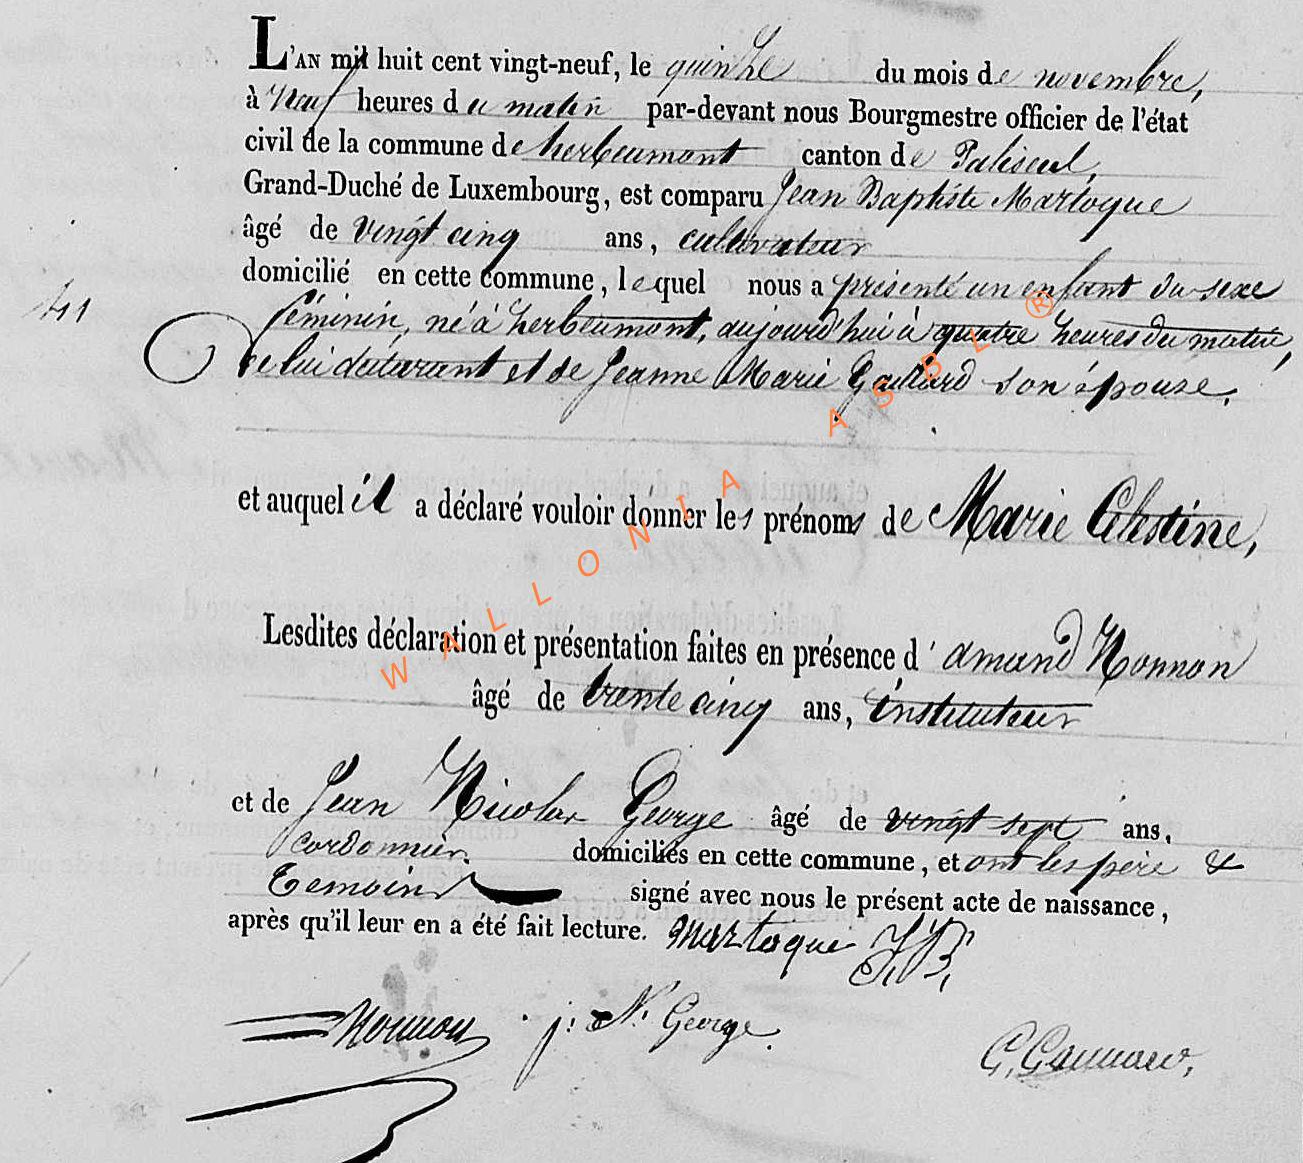 L'AN mil huit cent vingt-neuf, le quinze du mois de novembre,
à Neuf heures du matin par-devant nous Bourgmestre officier de l'état
civil de la commune de herbeumont canton de Paliseul,
Grand-Duché de Luxembourg, est comparu Jean Baptiste Martoque
âgé de vingt cinq ans, cultivateur
domicilié en cette commune, lequel nous a présenté un enfant du sexe
41 féminin, né à herbeumont, aujourd'hui à quatre heures du matin,
de lui déclarant et de Jeanne Marie Gaillard son épouse.
et auquel il a déclaré vouloir donner les prénoms de Marie Célestine,
Lesdites déclaration et présentation faites en présence d'amand Nonnon
âgé de trente cinq ans, instituteur
et de Jean Nicolas George âgé de vingt sept ans,
cordonnier, domiciliés en cette commune, et ont les père &
Temoins signé avec nous le présent acte de naissance,
après qu'il leur en a été fait lecture. Martoque J,B,
Nonnon j: N. George.
WALLONIA ASBL ®